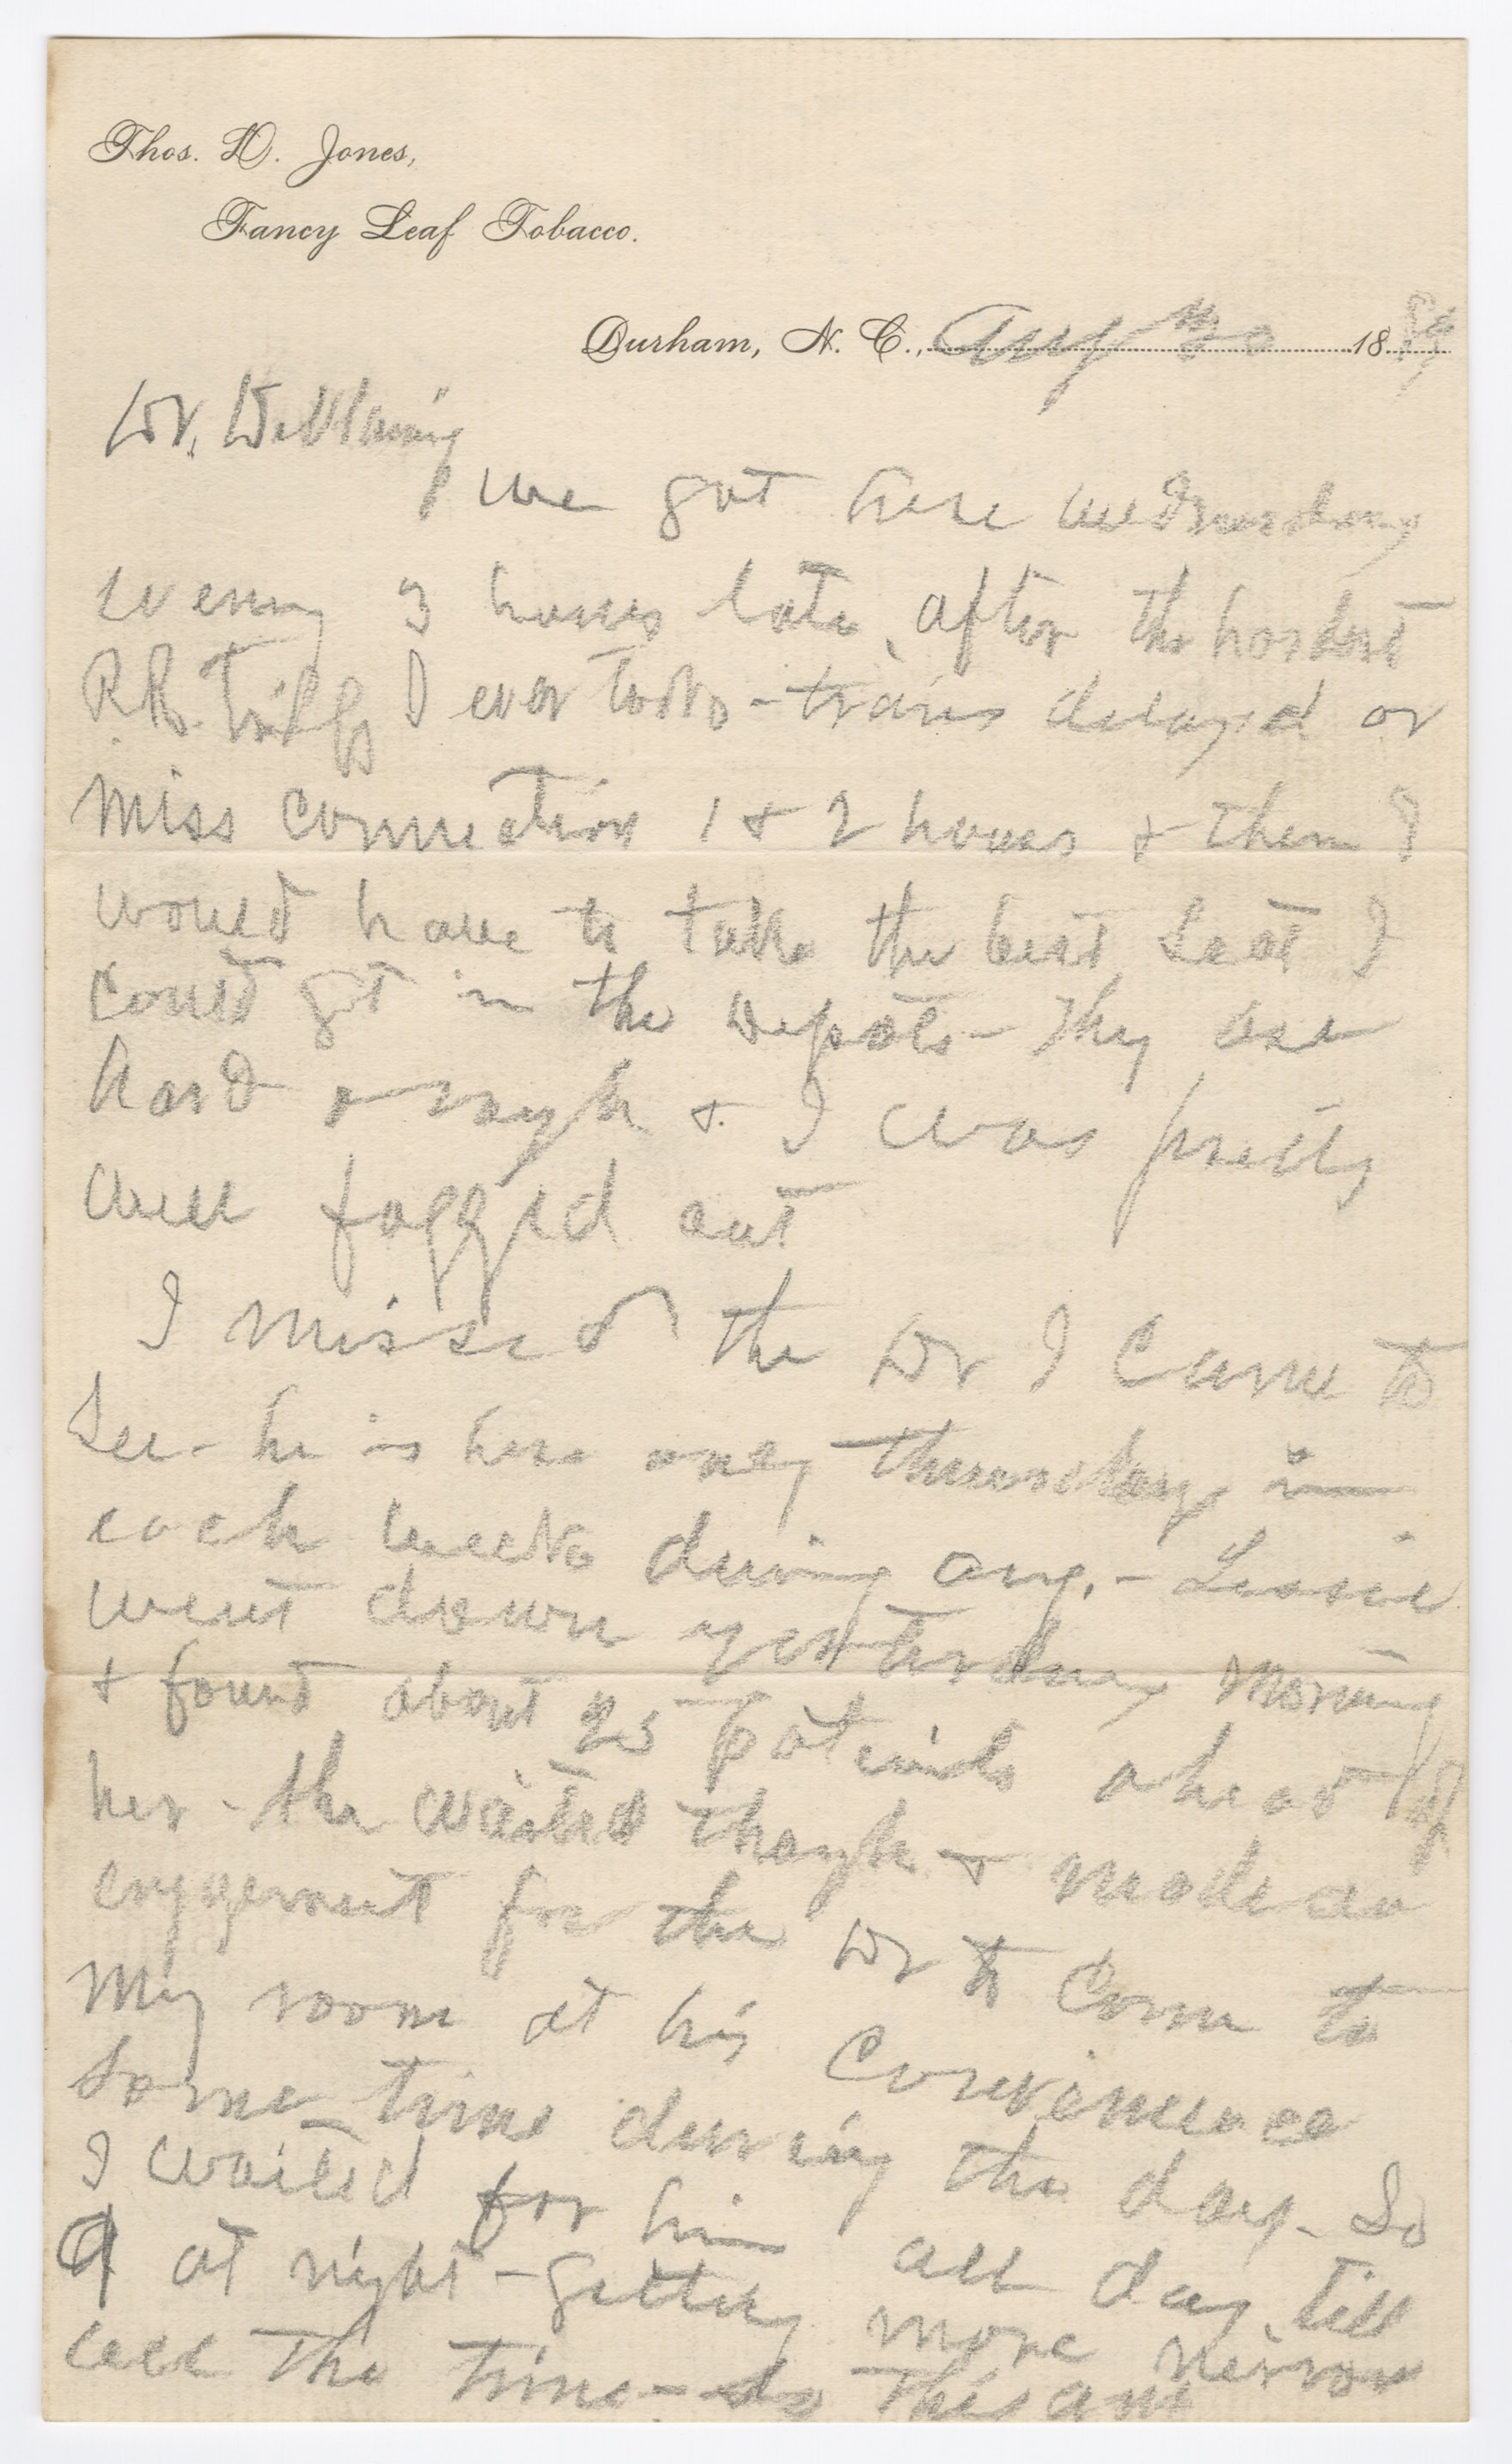 Thos. D. Jones,
Fancy Leaf Tobacco.
Durham, N. C., Aug 30 1889
Dr.
we got here wednesday
evening 3 hours late, after the hardest
R.R. I ever took - trains delayed or
miss connection 1 & 2 hours & then I
would have to take the best seat I
could get in the depots - They are
hard enough & I was pretty
well fagged out
I missed the Dr I came to
see - he is here only thursdays in
each week during aug. - Lessie
went down yesterday morning
& found about 25 patients ahead of
her - she waited though & made an
engagement for the Dr to come to
my room at his convenience
some time during the day - So
I waited for him all day till
9 at night - getting more nervous
all the time - so this am